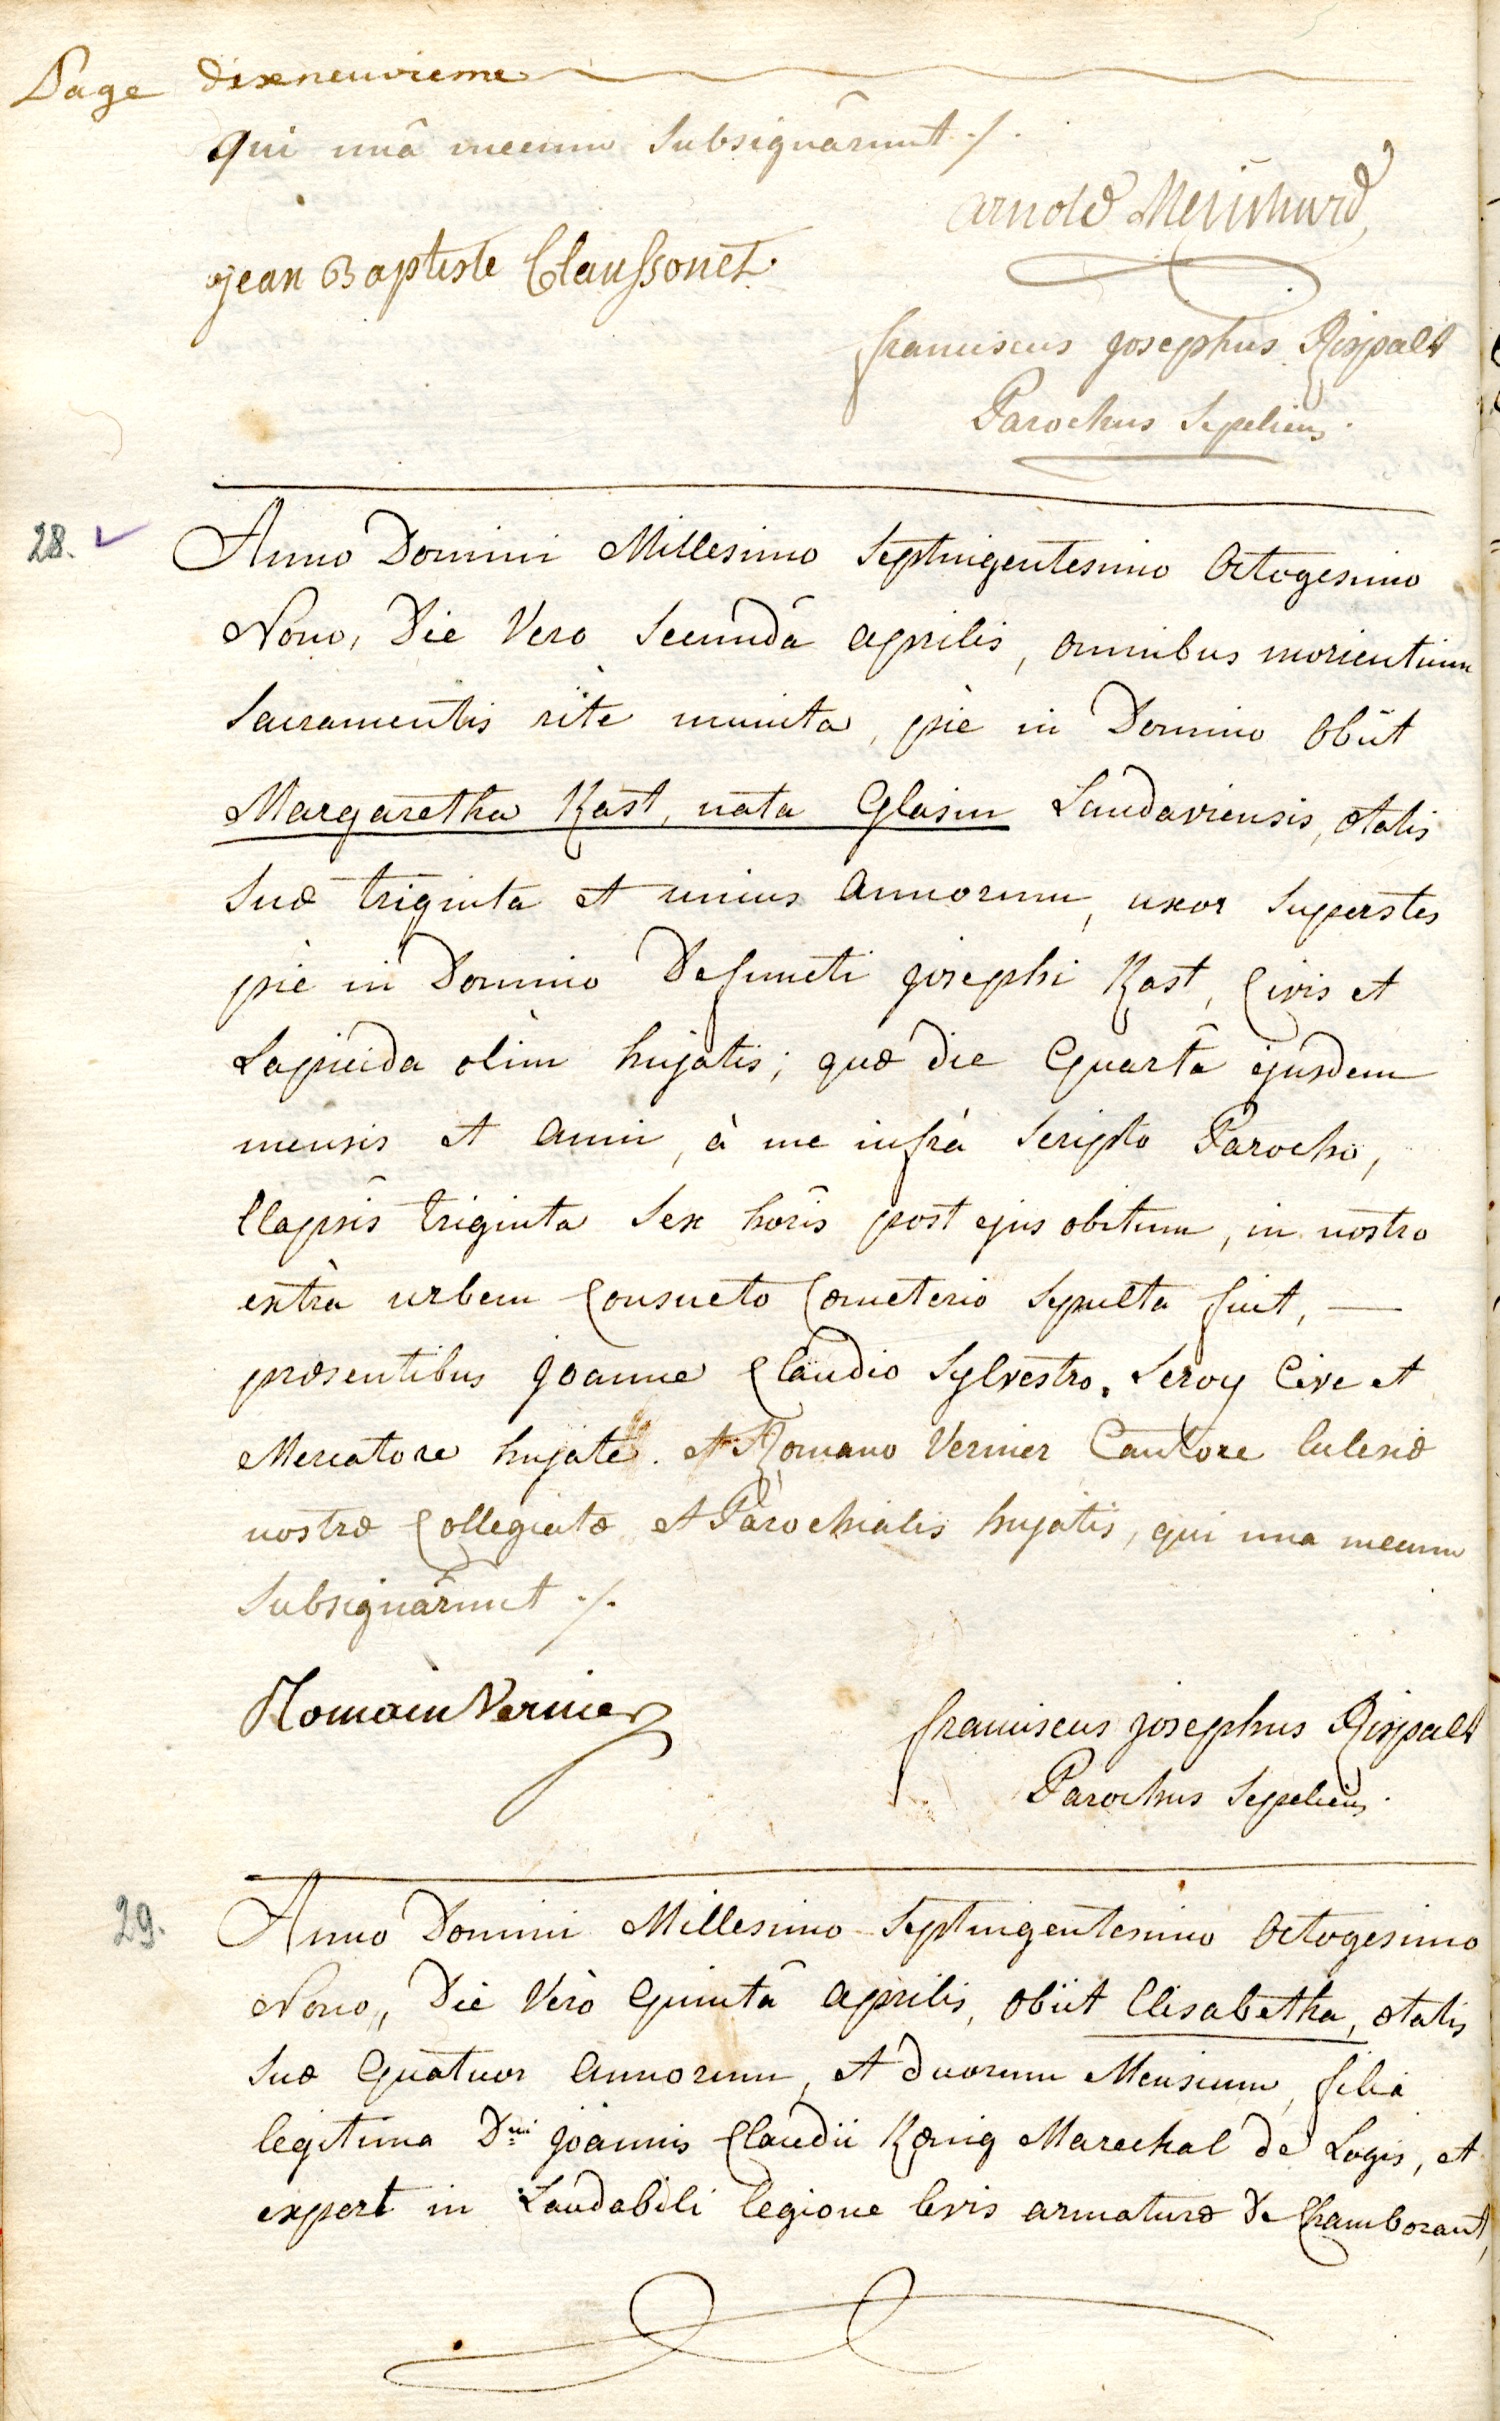 Page dixneuvieme
qui unâ mecum subsignârunt ./.
arnold Meinhard
jean Baptiste Claussonet.
franciscus josephus Rispalt
Parochus Sepeliens.
28.
Anno Domini Millesimo Septingentesimo Octogesimo
Nono, Die Vero Secundâ aprilis, omnibus morientium
Sacramentis rite munita, piè in Domino Obiit
Margaretha Kast, nata Glasin Landaviensis, ætatis
suæ triginta et unius annorum, uxor superstes
piè in Domino Defuncti josephi Kast, Civis et
Lapicida olim hujatis; quæ die Quartâ ejusdem
mensis et anni, à me infrà scripto Parocho,
Elapsis triginta sex horis post ejus obitum, in nostro
extrà urbem Consueto Cœmeterio sepulta fuit, —
præsentibus joanne Claudio Sylvestro Leroy Cive et
Mercatore hujate. et Romano Vernier Cantore Eclesiæ
nostræ Collegiatæ et Parochialis hujatis, qui una mecum
subsignârunt ./.
Romain Vernier
franciscus josephus Rispalt
Parochus Sepeliens.
29.
Anno Domini Millesimo Septingentesimo Octogesimo
Nono, Die Verò Quintâ aprilis, obiit Elisabetha, ætatis
suæ Quatuor annorum, et duorum Mensium, filia
legitima Dni joannis Claudii Kœnig Marechal de Logis, et
expert in Laudabili legione levis armaturæ De Chamborant,